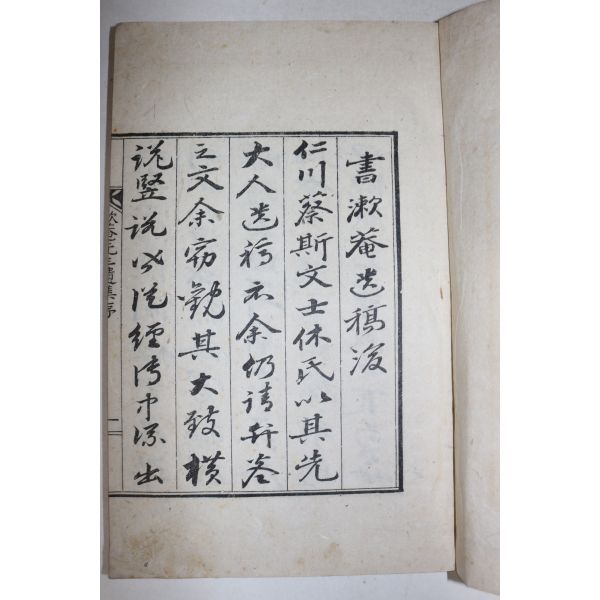 書漱菴遺稿後
仁川蔡斯文士休氏以其先
大人遺稿示余仍請弁卷
之文余窃觀其大致橫
説竪説皆從經傳中流出
遺集序